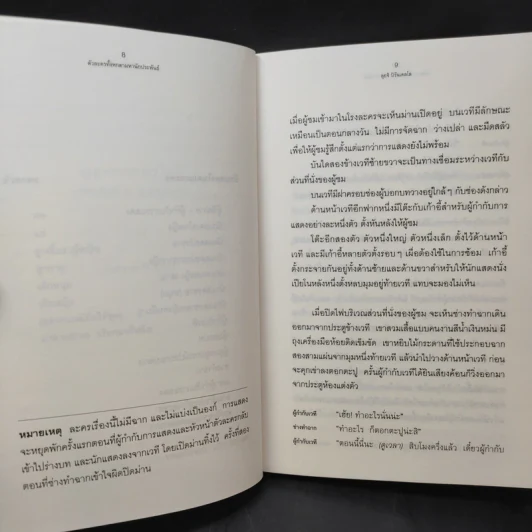 8
ตัวละครทั้งหกตามหานักประพันธ์
หมายเหตุ ละครเรื่องนี้ไม่มีฉาก และไม่แบ่งเป็นองก์ การแสดง
จะหยุดพักครั้งแรกตอนที่ผู้กำกับการแสดงและหัวหน้าตัวละครกลับ
เข้าไปร่างบท และนักแสดงลงจากเวที โดยเปิดม่านทิ้งไว้ ครั้งที่สอง
ตอนที่ช่างทำฉากเข้าใจผิดปิดม่าน
9
ลุยจิ ปิรันเดลโล
เมื่อผู้ชมเข้ามาในโรงละครจะเห็นม่านเปิดอยู่ บนเวทีมีลักษณะ
เหมือนเป็นตอนกลางวัน ไม่มีการจัดฉาก ว่างเปล่า และมืดสลัว
เพื่อให้ผู้ชมรู้สึกตั้งแต่แรกว่าการแสดงยังไม่พร้อม
บันไดสองข้างเวทีซ้ายขวาจะเป็นทางเชื่อมระหว่างเวทีกับ
ส่วนที่นั่งของผู้ชม
บนเวทีมีฝาครอบช่องผู้บอกบทวางอยู่ใกล้ๆ กับช่องดังกล่าว
ด้านหน้าเวทีอีกฟากหนึ่งมีโต๊ะกับเก้าอี้สำหรับผู้กำกับการ
แสดงอย่างละหนึ่งตัว ตั้งหันหลังให้ผู้ชม
โต๊ะอีกสองตัว ตัวหนึ่งใหญ่ ตัวหนึ่งเล็ก ตั้งไว้ด้านหน้า
เวที และมีเก้าอี้หลายตัวตั้งรอบๆ เผื่อต้องใช้ในการซ้อม เก้าอี้
ตั้งกระจายกันอยู่ทั้งด้านซ้ายและด้านขวาสำหรับให้นักแสดงนั่ง
เปียโนหลังหนึ่งตั้งหลบมุมอยู่ท้ายเวที แทบจะมองไม่เห็น
เมื่อปิดไฟบริเวณส่วนที่นั่งของผู้ชม จะเห็นช่างทำฉากเดิน
ออกมาจากประตูข้างเวที เขาสวมเสื้อแบบคนงานสีน้ำเงินหม่น มี
ถุงเครื่องมือห้อยติดเข็มขัด เขาหยิบไม้กระดานที่ใช้ประกอบฉาก
สองสามแผ่นจากมุมหนึ่งท้ายเวที แล้วนำไปวางด้านหน้าเวที ก่อน
จะคุกเข่าลงตอกตะปู ครั้นผู้กำกับเวทีได้ยินเสียงค้อนก็วิ่งออกมา
จากประตูห้องแต่งตัว
ผู้กำกับเวที "เฮ้ย! ทำอะไรนั่นน่ะ"
ช่างทำฉาก "ทำอะไร ก็ตอกตะปูน่ะสิ"
ผู้กำกับเวที "ตอนนี้นี่นะ (ดูเวลา) สิบโมงครึ่งแล้ว เดี๋ยวผู้กำกับ